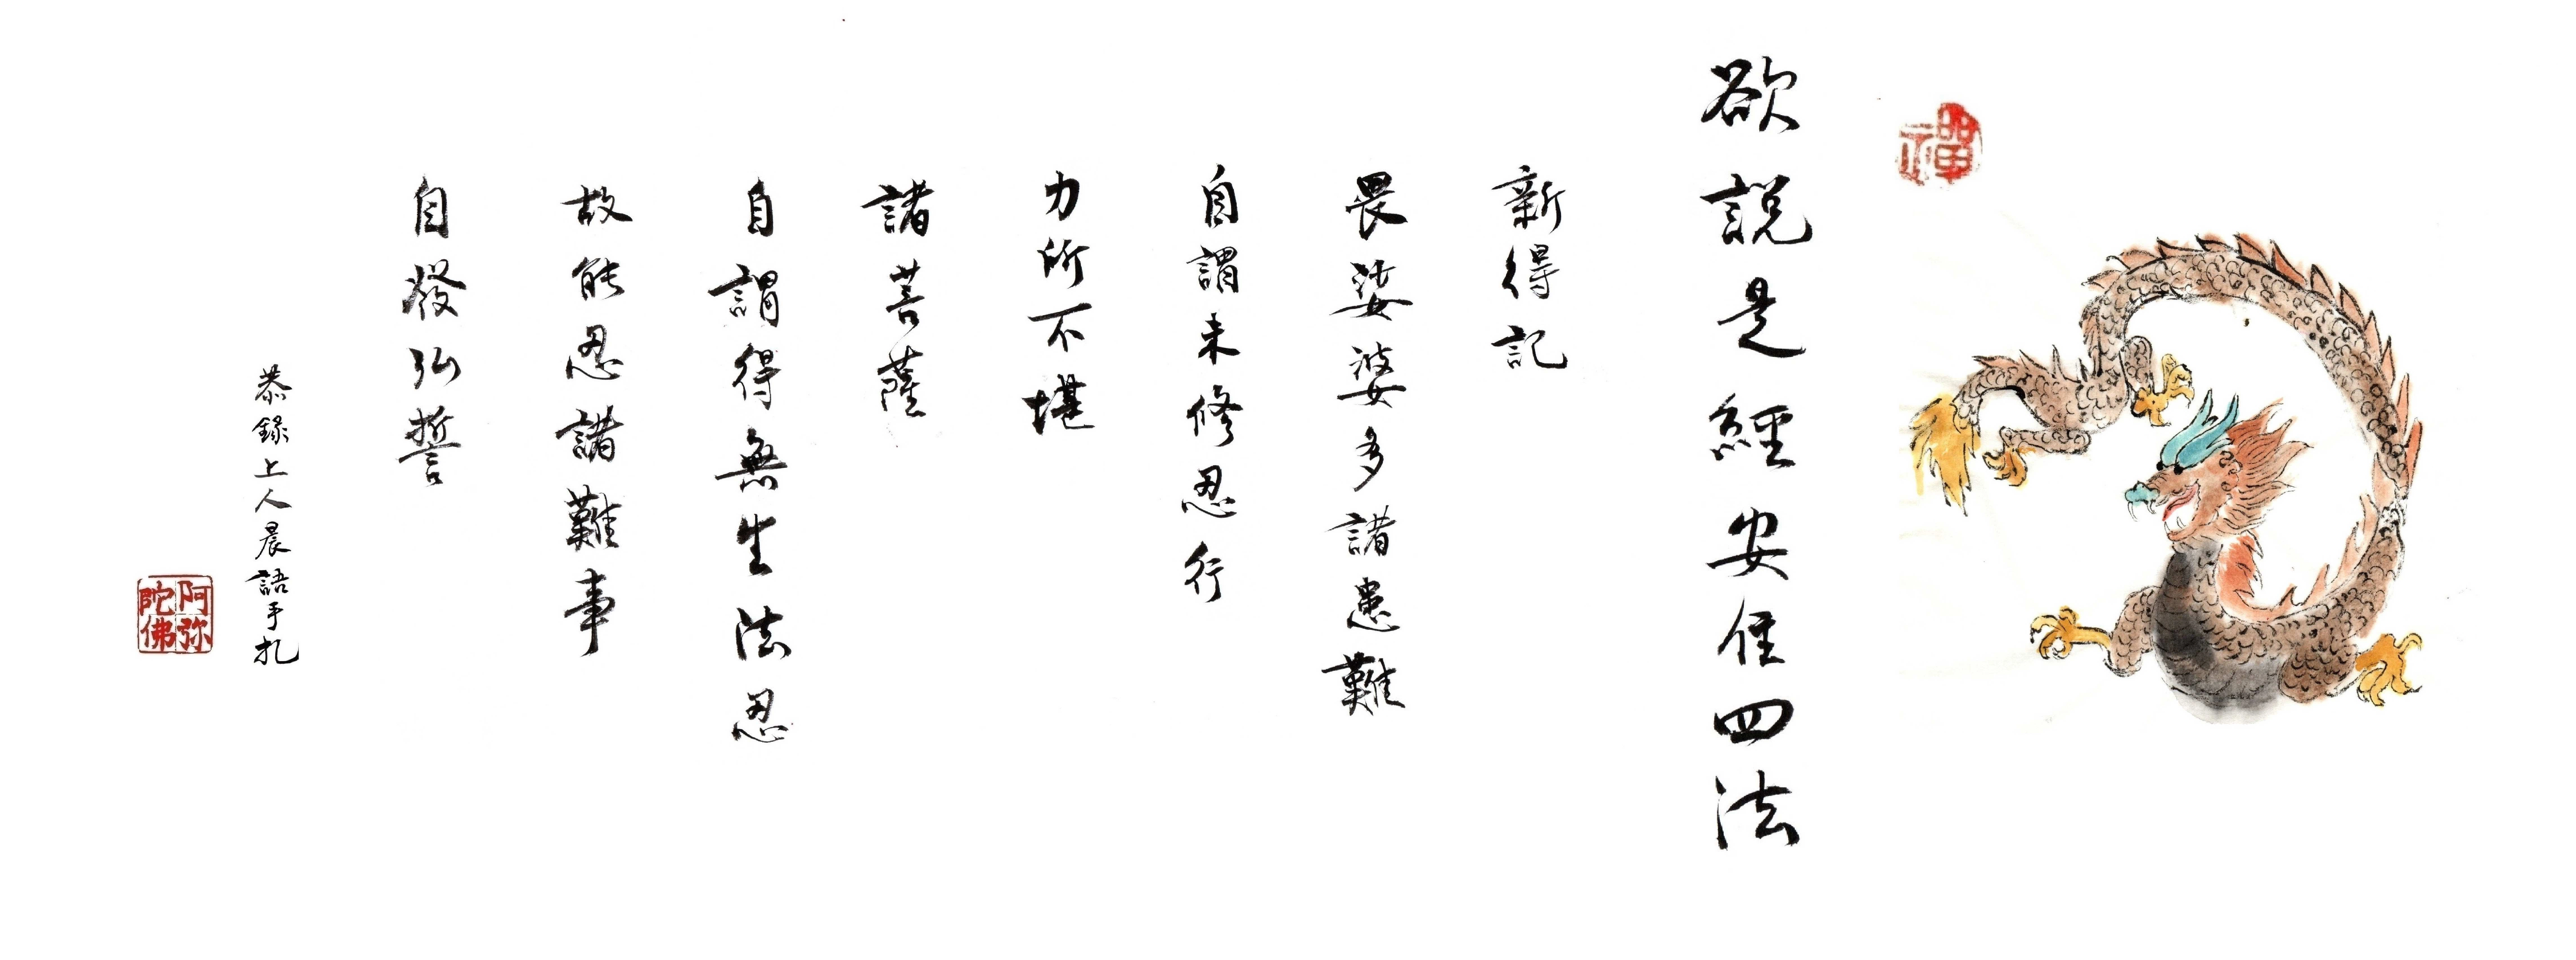 禪
欲說是經安住四法
新得記
畏娑婆多諸患難
自謂未修忍行
力所不堪
諸菩薩
自謂得無生法忍
故能忍諸難事
自發弘誓
恭錄上人晨語手札
阿弥
陀佛